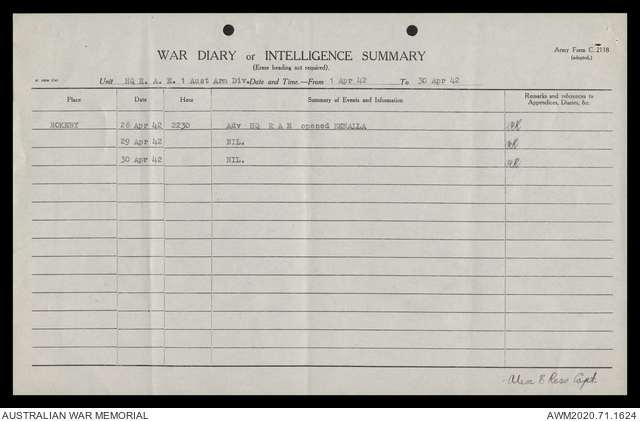 Army Form C. 2118
(adapted.)
WAR DIARY or INTELLIGENCE SUMMARY
(Erase heading not required).
Unit HQ R. A. E. 1 Aust Arm Div. Date and Time.—From 1 Apr 42 To 30 Apr 42
Place Date Hour Summary of Events and Information Remarks and references to Appendices, Diaries, &c.
ROKEBY 28 Apr 42 2230 Adv HQ R A E opened BENALLA
29 Apr 42 NIL.
30 Apr 42 NIL.
Ross Capt.
AUSTRALIAN WAR MEMORIAL AWM2020.71.1624